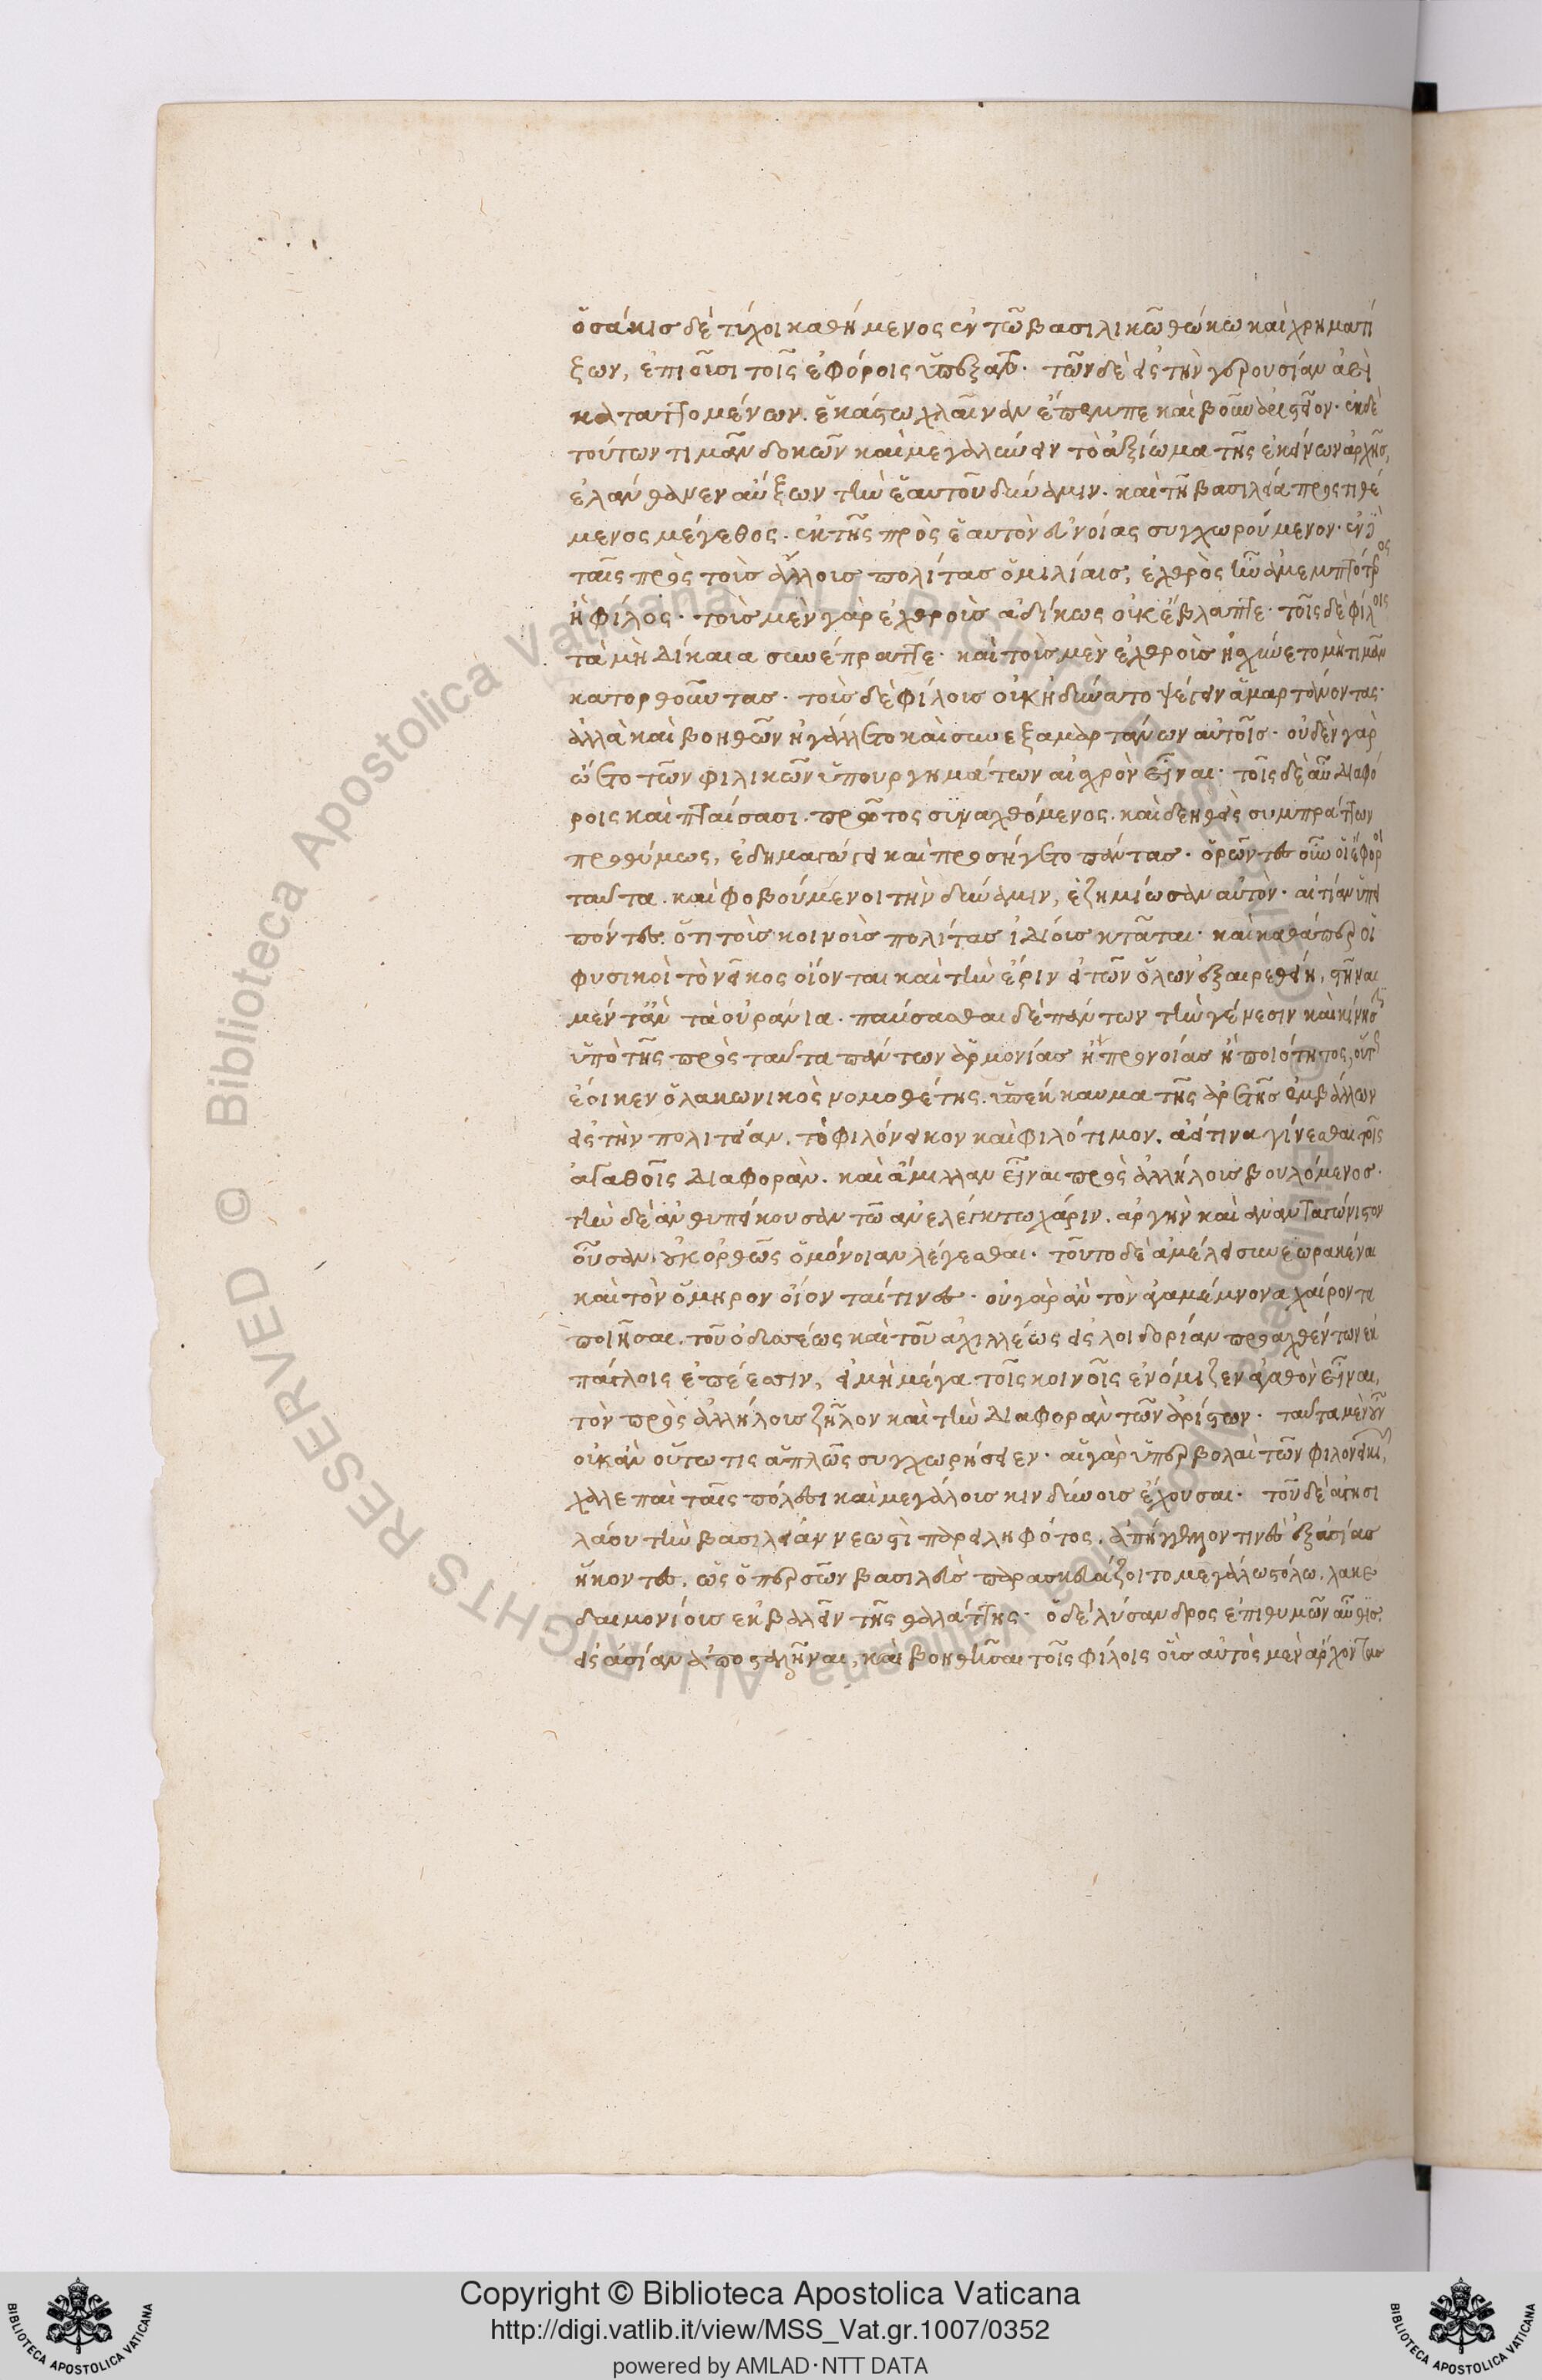 ὁσάκις δὲ τύχοι καθήμενος ἐν τῷ βασιλικῷ θώκῳ καὶ χρηματί
ζων, ἐπιοῦσι τοῖς ἐφόροις ὑπεξανί. τῶν δὲ εἰς τὴν γερουσίαν ἀεὶ
καταττομένων. ἑκάστῳ χλαῖναν ἔπεμπε καὶ βοῦν ἀριστεῖον. ἐκ δὲ
τούτων τιμᾶν δοκῶν καὶ μεγαλύνειν τὸ ἀξίωμα τῆς ἐκείνων ἀρχῆς,
ἐλάνθανεν αὔξων τὴν ἑαυτοῦ δύναμιν. καὶ τῇ βασιλείᾳ προστιθέ
μενος μέγεθος. ἐκ τῆς πρὸς ἑαυτὸν εὐνοίας συγχωρούμενον. ἐν δὲ
ταῖς πρὸς τοὺς ἄλλους πολίτας ὁμιλίαις, ἐχθρὸς ἦν ἀμεμπτότερος
ἢ φίλος. τοὺς μὲν γὰρ ἐχθροὺς ἀδίκως οὐκ ἔβλαπτε. τοῖς δὲ φίλοις
τὰ μὴ δίκαια συνέπραττε. καὶ τοὺς μὲν ἐχθροὺς ᾐσχύνετο μὴ τιμᾶν
κατορθοῦντας. τοὺς δὲ φίλους οὐκ ἠδύνατο ψέγειν ἁμαρτάνοντας.
ἀλλὰ καὶ βοηθῶν ἠγάλλετο καὶ συνεξαμαρτάνων αὐτοῖς. οὐδὲν γὰρ
ᾤετο τῶν φιλικῶν ὑπουργημάτων αἰσχρὸν εἶναι. τοῖς δὲ αὖ διαφό
ροις καὶ πταίσασι. πρῶτος συναχθόμενος. καὶ δεηθεῖσ συμπράττων
προθύμως, ἐδημαγώγει καὶ προσήγετο πάντας. ὁρῶντες οὖν οἱ ἔφοροι
ταῦτα. καὶ φοβούμενοι τὴν δύναμιν, ἐζημίωσαν αὐτὸν. αἰτίαν ὑπει
πόντες. ὅτι τοὺς κοινοὺς πολίτας ἰδίους κτᾶται. καὶ καθάπερ οἱ
φυσικοὶ τὸ νεῖκος οἴονται καὶ τὴν ἔριν εἰ τῶν ὅλων ἐξαιρεθείη, στῆναι
μὲν τἂν τὰ οὐράνια. παύσασθαι δὲ πάντων τὴν γένεσιν καὶ κίνησιν
ὑπὸ τῆς πρὸς ταῦτα πάντων ἁρμονίας ἢ προνοίας ἢ ποιότητος, οὕτως
ἔοικεν ὁ λακωνικὸς νομοθέτης. ὑπέκκαυμα τῆς ἀρετῆς ἐμβάλλων
εἰς τὴν πολιτείαν. τὸ φιλόνεικον καὶ φιλότιμον. ἀεί τινα γίνεσθαι τοῖς
ἀγαθοῖς διαφορὰν. καὶ ἅμιλλαν εἶναι πρὸς ἀλλήλους βουλόμενος.
τὴν δὲ ἀνθυπείκουσαν τῷ ἀνελέγκτῳ χάριν. ἀργὴν καὶ ἀναγώνιστον
οὖσαν. οὐκ ὀρθῶς ὁμόνοιαν λέγεσθαι. τοῦτο δὲ ἀμέλει συνεωρακέναι
καὶ τὸν ὅμηρον οἴονταί τινες. οὐ γὰρ ἂν τὸν ἀγαμέμνονα χαίροντα
ποιῆσαι. τοῦ ὀδυσσέως καὶ τοῦ ἀχιλλέως εἰς λοιδορίαν προαχθέντων ἐκ
πάγλοις ἐπέεσσιν, εἰ μὴ μέγα τοῖς κοινοῖς ἐνόμιζεν ἀγαθὸν εἶναι,
τὸν πρὸς ἀλλήλους ζῆλον καὶ τὴν διαφορὰν τῶν ἀρίστων. ταῦτα μὲν οὖν
οὐκ ἂν οὕτω τις ἁπλῶς συγχωρήσειεν. αἱ γὰρ ὑπερβολαὶ τῶν φιλονεικιῶν,
χαλεπαὶ ταῖς πόλεσι καὶ μεγάλους κινδύνους ἔχουσαι. τοῦ δὲ ἀγησι
λάου τὴν βασιλείαν νεωστὶ παρειληφότος. ἀπήγγελλόν τινες ἐξ ἀσίας
ἥκοντες. ὡς ὁ περσῶν βασιλεὺς παρασκευάζοιτο μεγάλῳ στόλῳ. λακε
δαιμονίους ἐκβαλεῖν τῆς θαλάττης. ὁ δὲ λύσανδρος ἐπιθυμῶν αὖθις
εἰς ἀσίαν ἀποσταλῆναι, καὶ βοηθῆσαι τοῖς φίλοις οὓς αὐτὸς μὲν ἄρχοντας
© Biblioteca Apostolica Vaticana ALL RIGHTS RESERVED © Biblioteca Apostolica Vaticana ALL RIGHTS RESERVED
Copyright © Biblioteca Apostolica Vaticana
http://digi.vatlib.it/view/MSS_Vat.gr.1007/0352
powered by AMLAD·NTT DATA
BIBLIOTECA APOSTOLICA VATICANA
BIBLIOTECA APOSTOLICA VATICANA